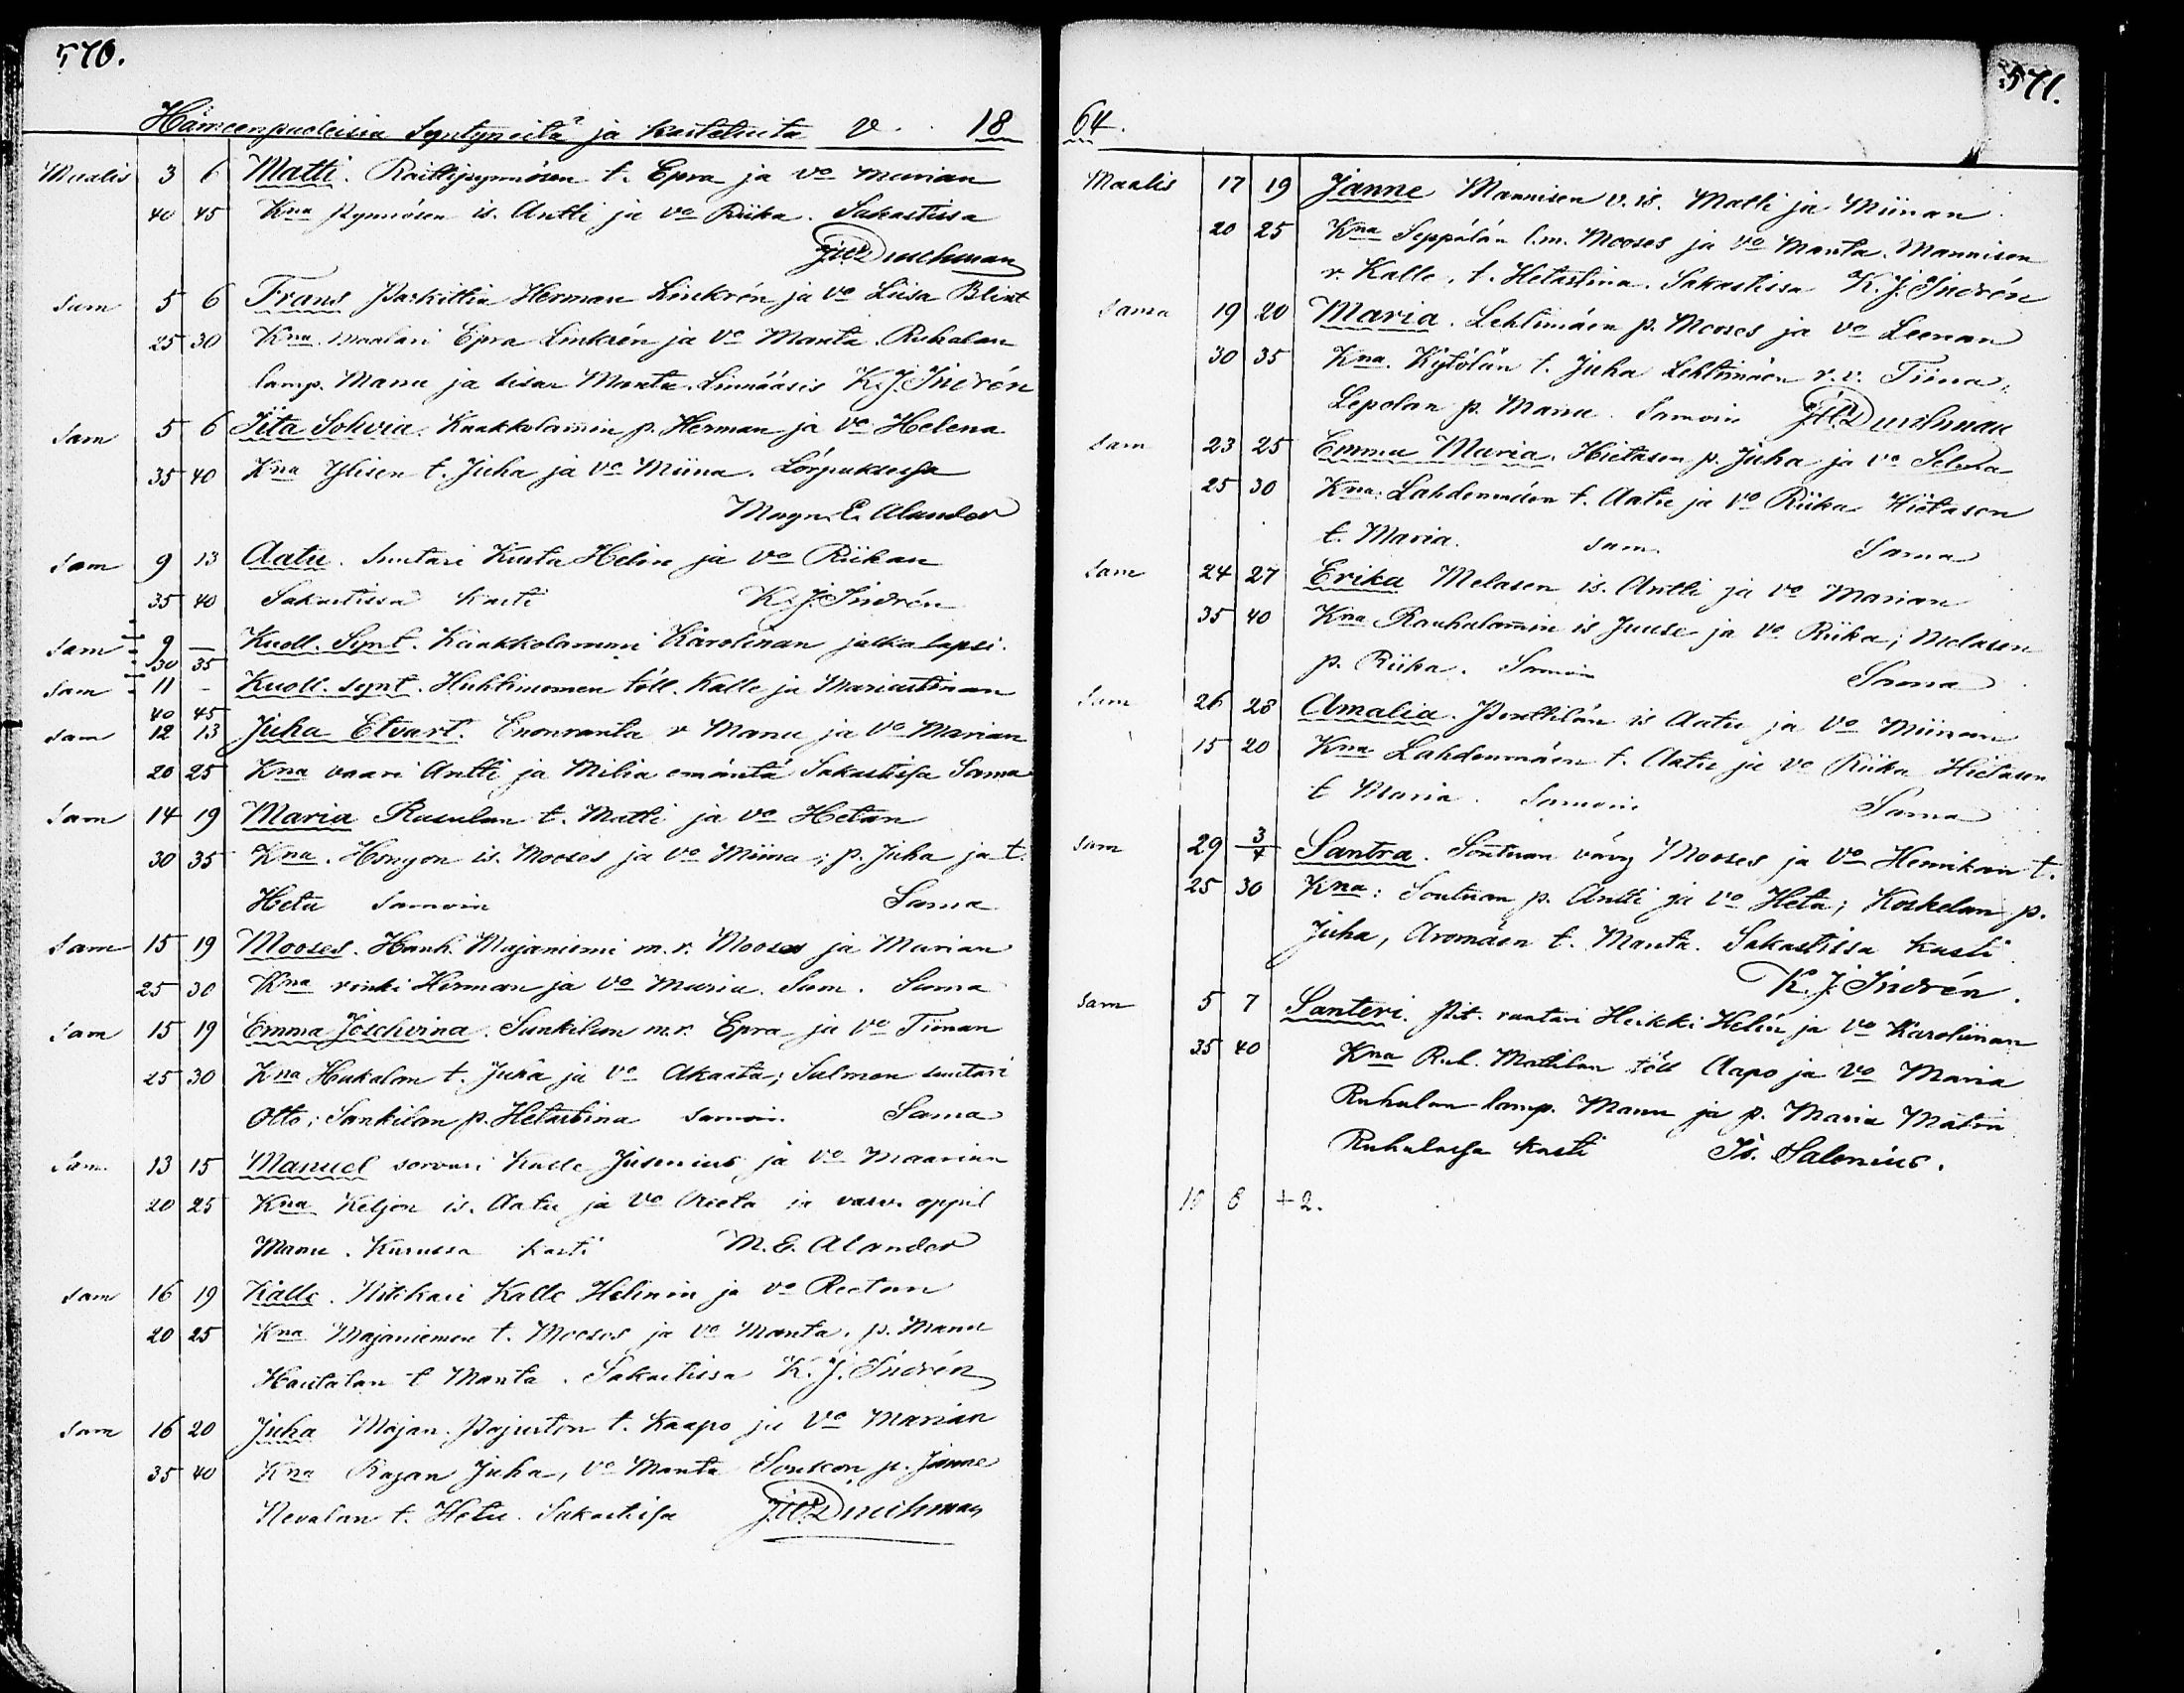 570.
Hämeenpuoleisia Syntyneitä ja kastetuita V. 18
Maalis 3 6 Matti. Raittipynnösen t. Epra ja vo Marian
40 45 Kna Pynnösen is. Antti ja vo Riika. Sakastissa
Durchman
Sam 5 6 Frans Herman Linkrén ja vo Liisa Blixt
25 30 Kna. Maalari Epra Linkrén ja vo Manta. Ruhalan
lamp. Manu ja sisar Manta. K. J. Indrén
Sam 5 6 Iita Sohvia. Kaakkolamin p. Herman ja vo Helena
35 40 Kna Ylisen t. Juha ja vo Miina.
Magn. E. Alander
Sam 9 13 Aatu. Suutari Kusta Helin ja vo Riikan
35 40 Sakastissa kasti K. J. Indrén
Sam 9 — Kuoll. Synt. Kaakkolammi Karolinan jalkalapsi.
30 35
Sam 11 - Kuoll. synt. Huhtimomen töll. Kalle ja Mariastinan
40 45
Sam 12 13 Juha Etvart. Enonranta r Manu ja vo Marian
20 25 Kna vaari Antti ja Milia emäntä Sakastissa Sama
Sam 14 19 Maria Rusulan t. Matti ja vo Hetan
30 35 Kna. Hongon is. Mooses ja vo Miina; p. Juha ja t.
Heta Samoin Sama
Sam 15 19 Mooses. Hauh. Majaniemi m.r. Mooses ja Marian
25 30 Kna renki Herman ja vo Maria. Sam. Sama
Sam 15 19 Emma Joschvina. Sankilan m.r. Epra ja vo Tiinan
25 30 Kna Hukalan t. Juha ja vo Akaata; Salmen suutari
Otto; Sankilan p. Hetastina samoin. Sama
Sam 13 15 Manuel sorvari Kalle Jusenius ja vo Maarian
20 25 Kna Keljon is. Aatu ja vo Reeta ja oppil
Manu. Kurussa kasti M. E. Alander
Sam 16 19 Kalle. Nikkari Kalle Helinin ja vo Reetan
20 25 Kna Majaniemen t. Mooses ja vo Manta. p. Manu
Hautalan t Manta. Sakastissa K. J. Indrén
Sam 16 20 Juha Majan. Pajuston t. Kaapo ja vo Marian
35 40 Kna Rajan Juha, vo Manta p. Janne
Nevalan t. Heta. Sakastissa Durchman
571.
64.
Maalis 17 19 Janne Mannisen v. is. Matti ja Miinan
20 25 Kna Seppälän l.m. Mooses ja vo Manta. Mannisen
r. Kalle, t. Hetastina. Sakastissa K. J. Indrén
Sama 19 20 Maria. Lehtimäen p. Mooses ja vo Leenan
30 35 Kna. Kytölän t. Juha Lehtimäen r.v. Tiina;
Lepolan p. Manu. Samoin Durchman
Sam 23 25 Emma Maria. Hietasen p. Juha ja vo Selma
25 30 Kna: Lahdenmäen t. Aatu ja vo Riika Hietasen
t. Maria. sam. Sama
Sam 24 27 Erika Melasen is. Antti ja vo Marian
35 40 Kna Rauhalamin is Juuse ja vo Riika; Melasen
p. Riika. Samoin Sama
Sam 26 28 Amalia. Penttilän is Aatu ja vo Miinan
15 20 Kna Lahdenmäen t. Aatu ja vo Riika Hietasen
t Maria. Samoin Sama
Sam 29 3/4 Santra. Sontuan vävy Mooses ja vo Henrikan t.
25 30 Kna: Sontuan p. Antti ja vo Heta; Koskelan p.
Juha, Aromäen t. Manta. Sakastissa kasti
K. J. Indrén.
Sam 5 7 Santeri. Pit. rantari Heikki Helin ja vo Karoliinan
35 40 Kna Ruh. Mattilan töll Aapo ja vo Maria
Ruhalan lamp. Manu ja p. Maria
Ruhalassa kasti Is. Salonius.
10 8 + 2.